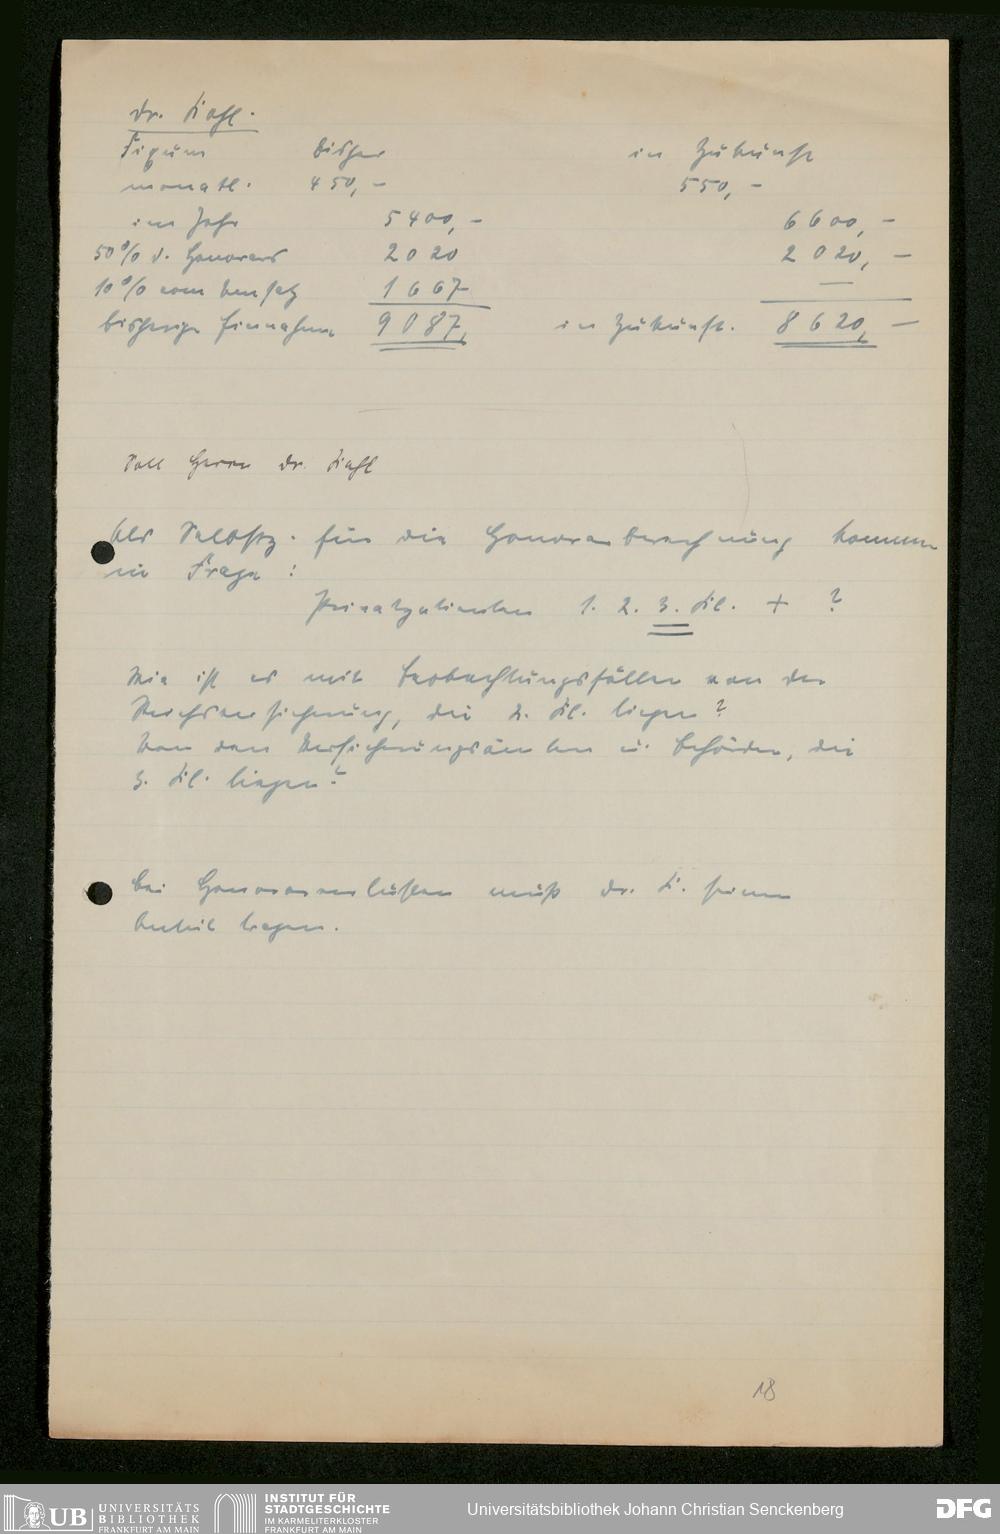 Dr. Kahl.
Fixum bisher in Zukunft
monatl. 450,- 550,-
im Jahr 5400,- 6600,-
50% d. Honorars 2020 2020,-
10% vom Umsatz 1667 —
bisherige Einnahme 9087, in Zukunft. 8620,-
Soll Herrn Dr. Kahl
Als für die Honorarberechnung kommen
in Frage :
Privatpatienten 1. 2. 3. Kl. + ?
Wie ist es mit Beobachtungsfällen von der
Reichsversicherung, die 2. Kl. liegen?
Von den Versicherungsämtern u. Behörden, die
3. Kl. liegen?
Bei Honorarverlusten muß Dr. K. seinen
Anteil tragen.
18
UB UNIVERSITÄTS
BIBLIOTHEK
FRANKFURT AM MAIN
INSTITUT FÜR
STADTGESCHICHTE
IM KARMELITERKLOSTER
FRANKFURT AM MAIN
Universitätsbibliothek Johann Christian Senckenberg
DFG